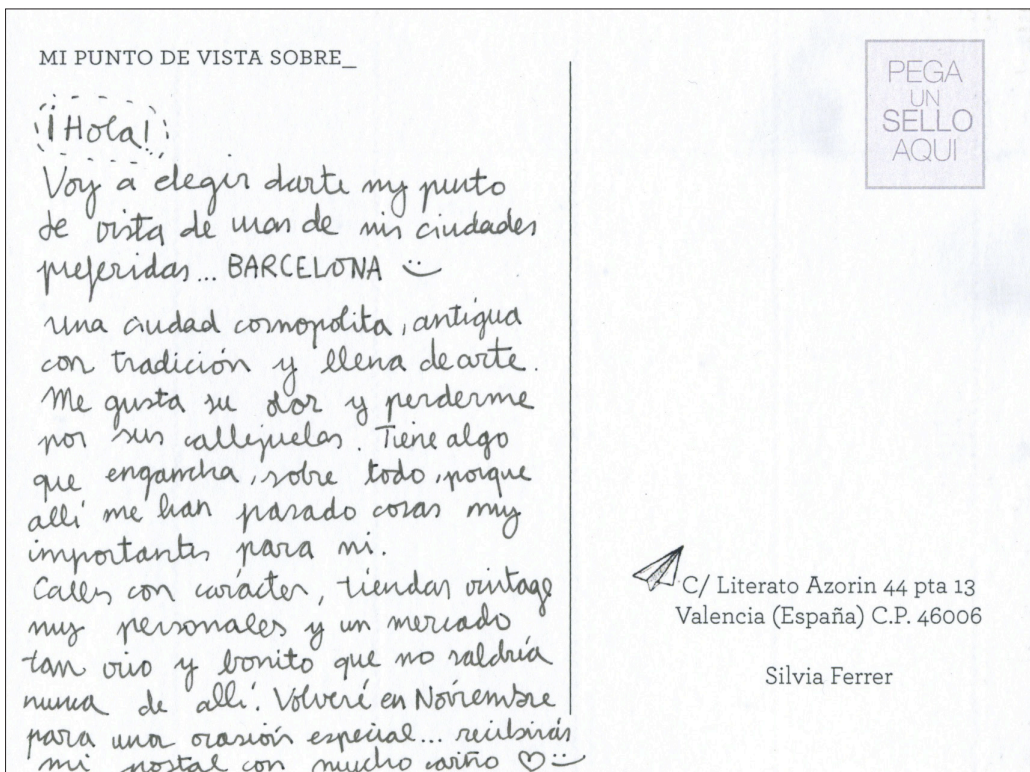 MI PUNTO DE VISTA SOBRE_
¡Hola!
Voy a elegir darte my punto
de vista de unas de mis ciudades
preferidas... BARCELONA
una ciudad cosmopolita, antigua
con tradición y llena de arte.
Me gusta su olor y perderme
por sus callejuelas. Tiene algo
que engancha, sobre todo, porque
allí me han pasado cosas muy
importantes para mi.
Calles con carácter, tiendas vintage
muy personales y un mercado
tan vivo y bonito que no saldría
nunca de allí. Volveré en Noviembre
para una ocasión especial... recibirás
mi postal con mucho cariño ♡
PEGA
UN
SELLO
AQUI
C/ Literato Azorin 44 pta 13
Valencia (España) C.P. 46006
Silvia Ferrer